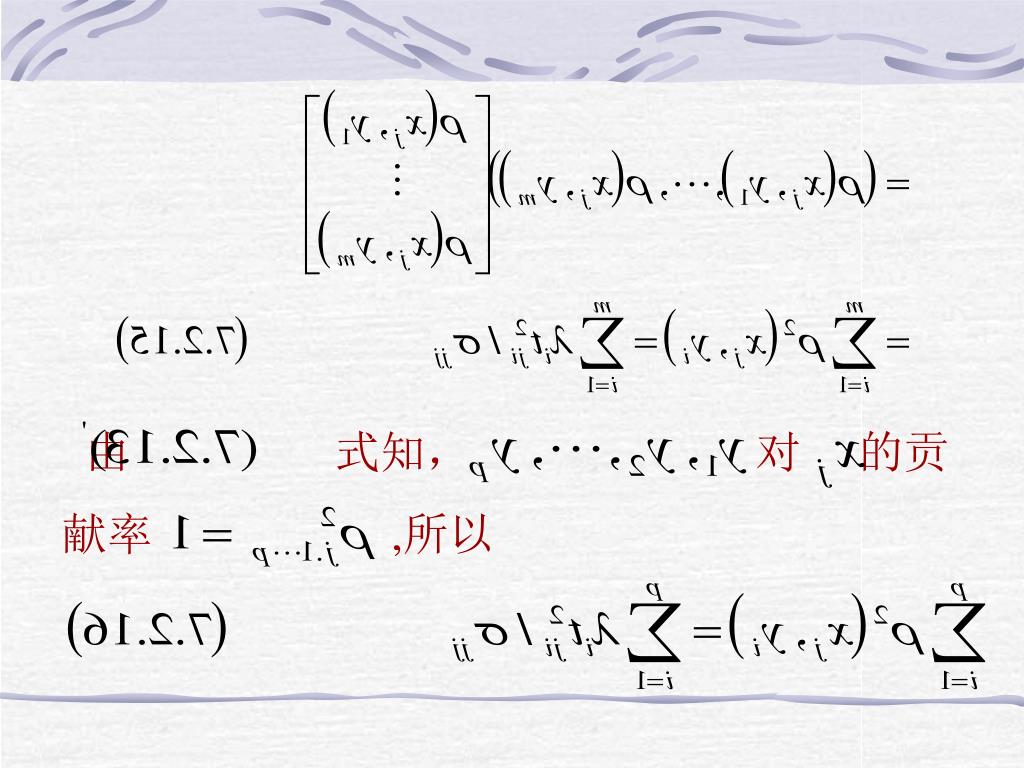 = (ρ(x_j, y_1), ⋯, ρ(x_j, y_m)) [ρ(x_j, y_1) ⋮ ρ(x_j, y_m)]
= ∑_{i=1}^{m} ρ^2(x_j, y_i) = ∑_{i=1}^{m} λ_i t_{ji}^2 / σ_{jj} (7.2.15)
由 (7.2.13)' 式知， y_1, y_2, ⋯, y_p 对 x_j 的贡
献率 ρ^2_{j.1⋯p} = 1 ,所以
∑_{i=1}^{p} ρ^2(x_j, y_i) = ∑_{i=1}^{p} λ_i t_{ji}^2 / σ_{jj} (7.2.16)